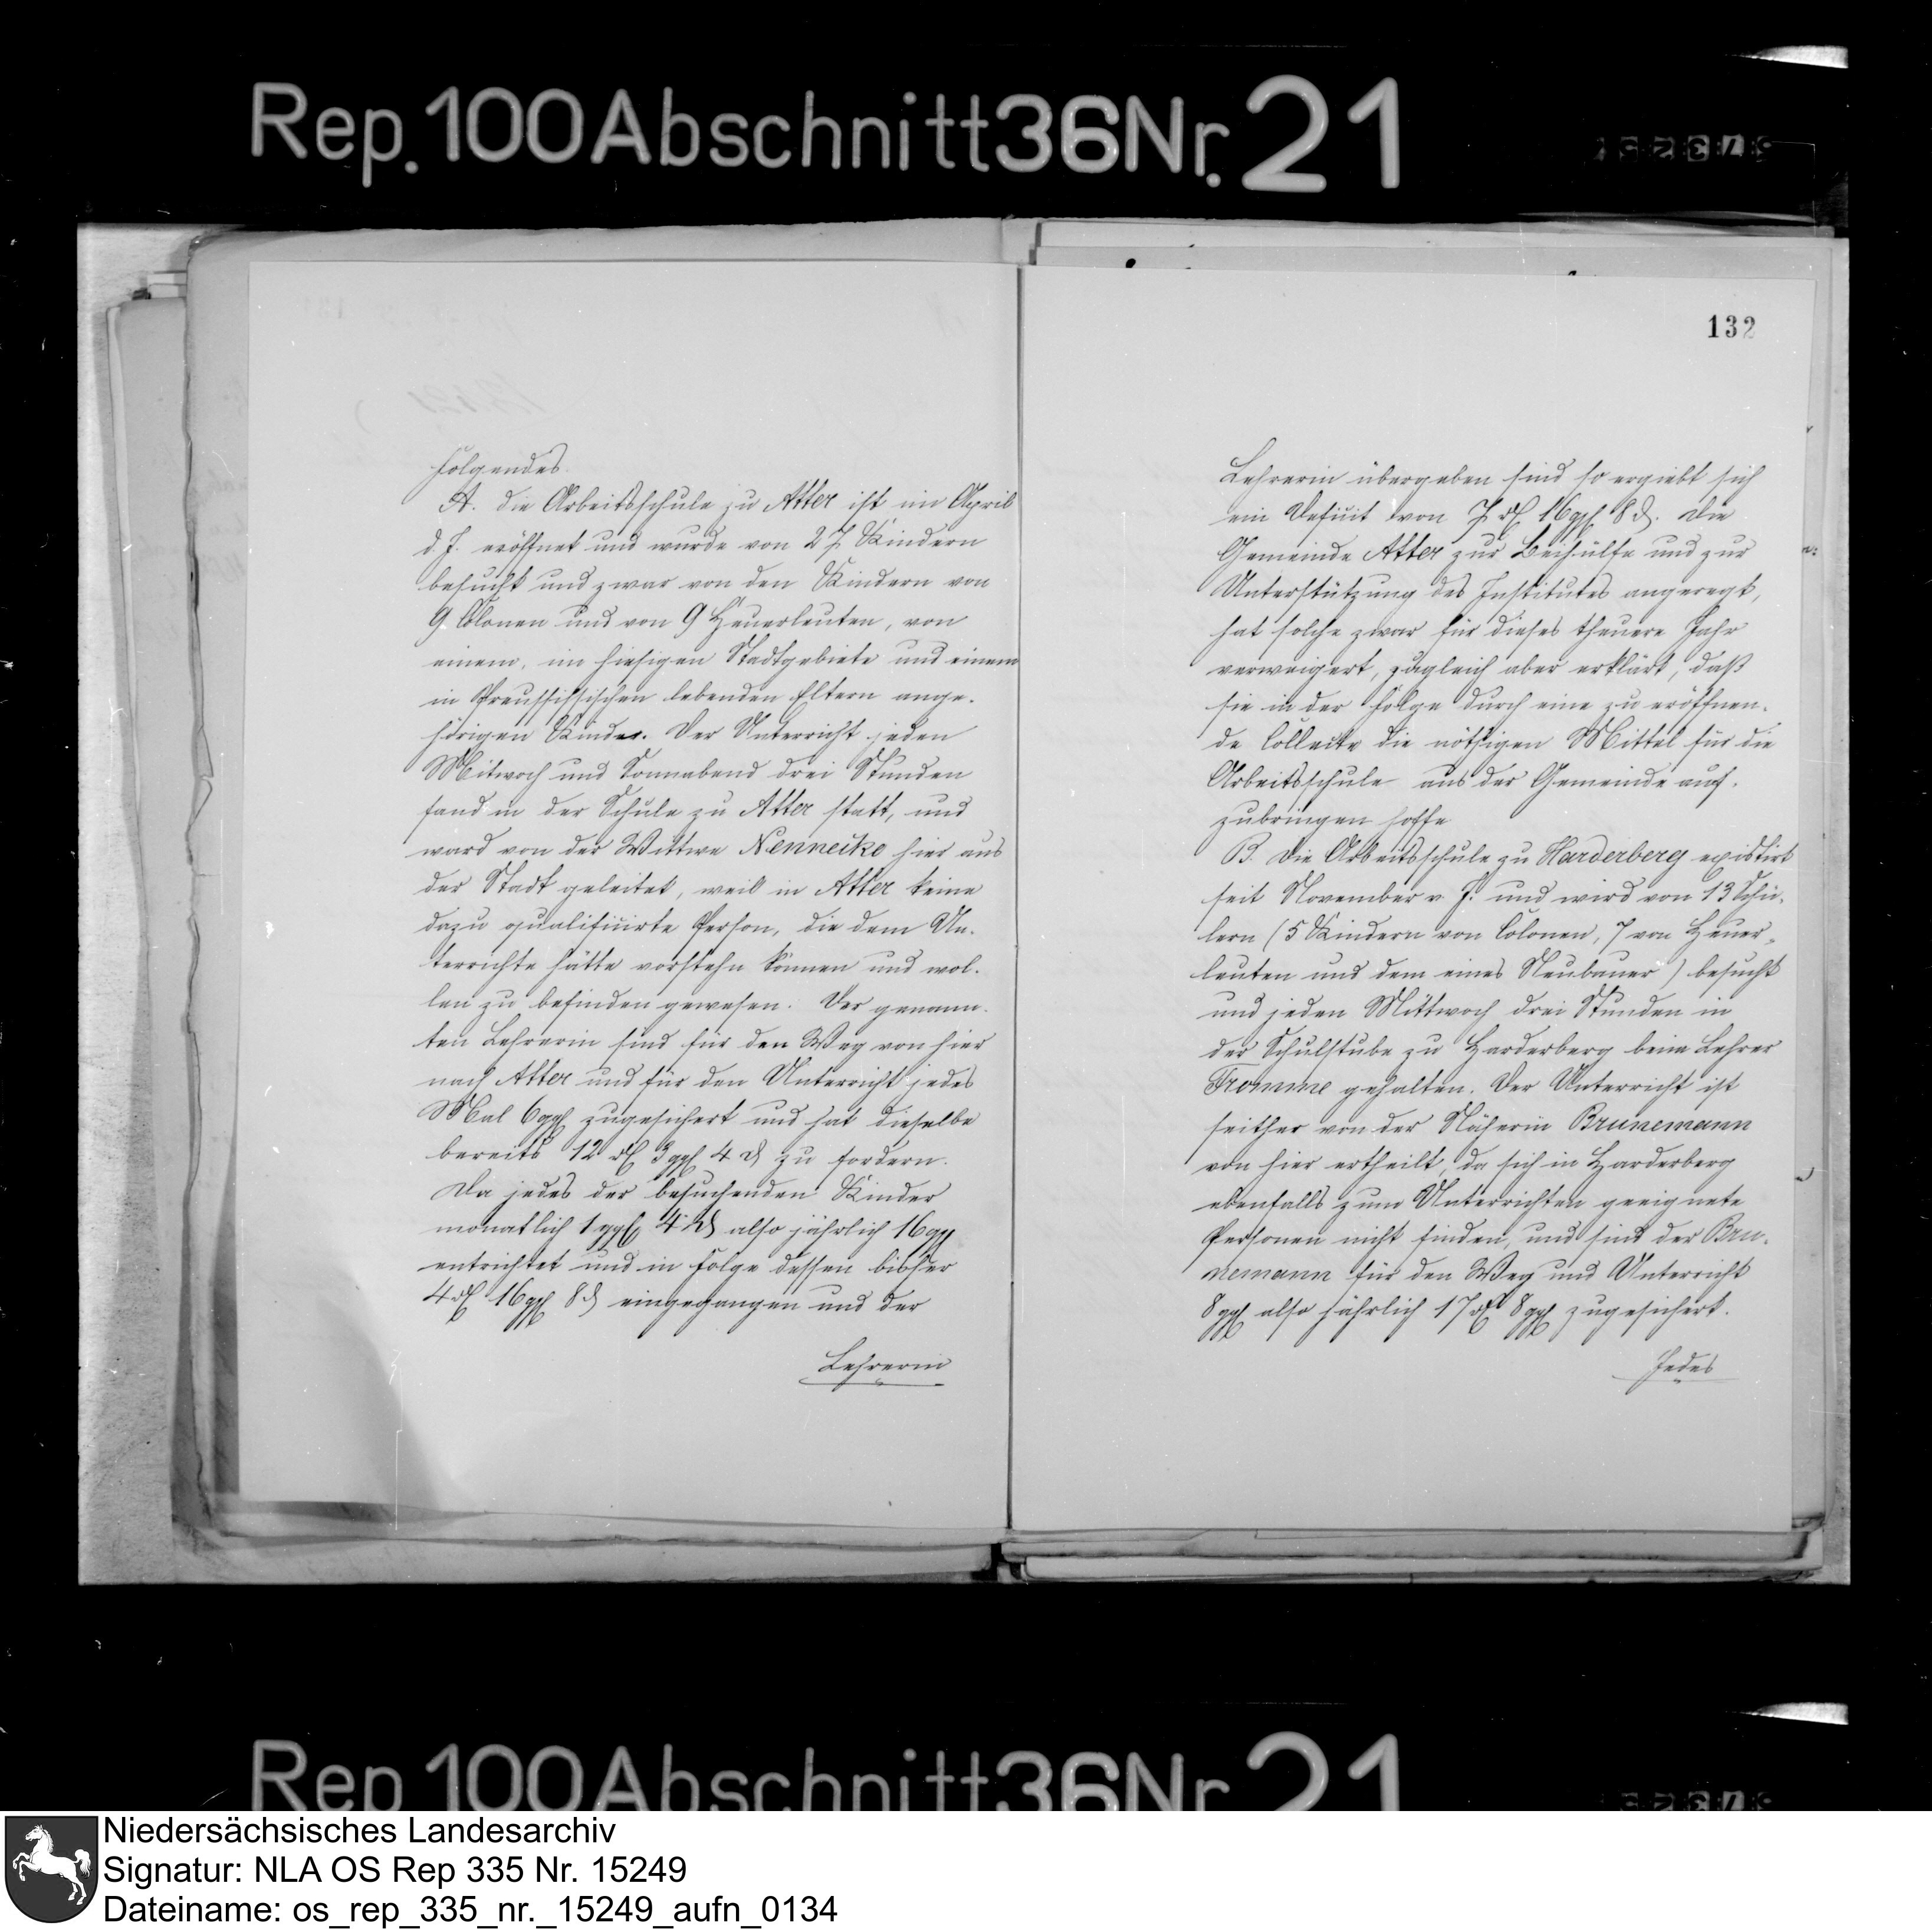 Rep. 100 Abschnitt 36 Nr. 21
folgendes.
A. die Arbeitsschule zu Atter ist im April
d. J. eröffnet und wurde von 27 Kindern
besucht und zwar von den Kindern von
9 Colonen und von 9 Heuerleuten, von
einem, im hiesigen Stadtgebiete und einem
in Preussissischen lebenden Eltern ange-
hörigen Kinder. Der Unterricht jeden
Mitwoch und Sonnabend drei Stunden
fand in der Schule zu Atter statt, und
ward von der Wittwe Nennecke hier aus
der Stadt geleitet, weil in Atter keine
dazu qualificirte Person, die dem Un-
terrichte hätte vorstehn können und wol-
len zu befinden gewesen. Der genann-
ten Lehrerin sind für den Weg von hier
nach Atter und für den Unterricht jedes
Mal 6 ggl zugesichert und hat dieselbe
bereits 12 rℓ 3 ggl 4 ₰ zu fordern.
Da jedes der besuchenden Kinder
monatlich 1 ggl 4 ₰ also jährlich 16 gg
entrichtet und in Folge dessen bisher
4 rℓ 16 ggl 8 ₰ eingegangen und der
Lehrerin
132
Lehrerin übergeben sind so ergiebt sich
ein Deficit von 7 rℓ 16 ggl 8 ₰. Die
Gemeinde Atter zur Beihülfe und zur
Unterstützung des Institutes angeregt,
hat solche zwar für dieses theuere Jahr
verweigert, zugleich aber erklärt, daß
sie in der Folge durch eine zu eröffnen-
de Collecte die nöthigen Mittel für die
Arbeitsschule aus der Gemeinde auf-
zubringen hoffe
B. Die Arbeitsschule zu Harderberg existirt
seit November v. J. und wird von 13 Schü-
lern (5 Kindern von Colonen, 7 von Heuer-
leuten und dem eines Neubauer) besucht
und jeden Mittwoch drei Stunden in
der Schulstube zu Harderberg beim Lehrer
Fromme gehalten. Der Unterricht ist
seither von der Näherin Brunemann
von hier ertheilt, da sich in Harderberg
ebenfalls zum Unterrichten geeignete
Personen nicht finden, und sind der Bru-
nemann für den Weg und Unterricht
8 ggl also jährlich 17 rℓ 8 ggl zugesichert.
Jedes
Rep 100 Abschnitt 36 Nr 21
Niedersächsisches Landesarchiv
Signatur: NLA OS Rep 335 Nr. 15249
Dateiname: os_rep_335_nr._15249_aufn_0134